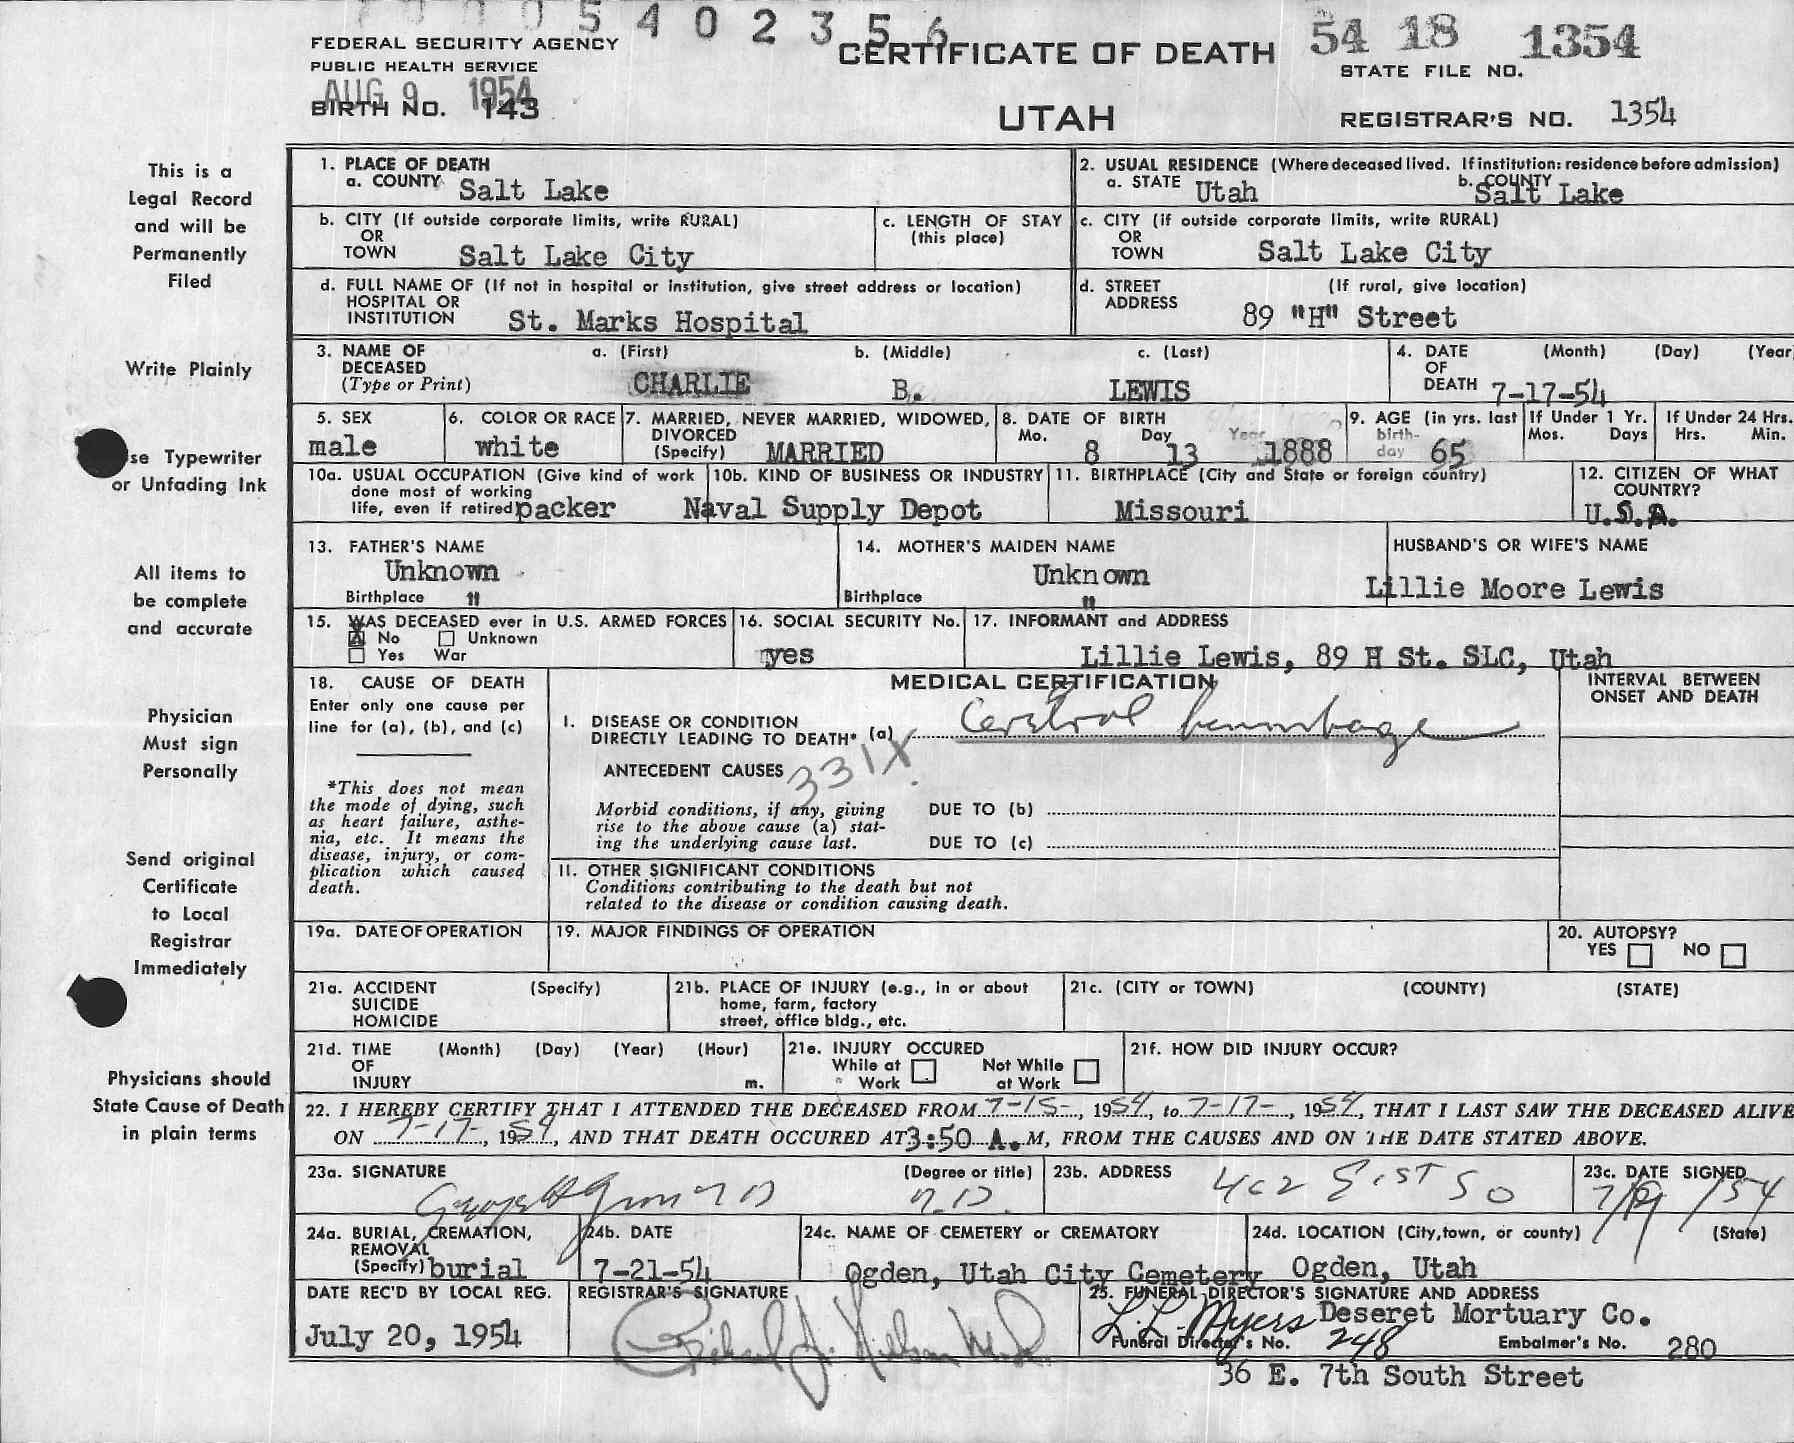 54 0 2 3 5 6
FEDERAL SECURITY AGENCY
PUBLIC HEALTH SERVICE
AUG 9 1954
BIRTH NO. 143
CERTIFICATE OF DEATH
UTAH
54 18 1354
STATE FILE NO.
REGISTRAR'S NO. 1354
This is a
Legal Record
and will be
Permanently
Filed
Write Plainly
se Typewriter
or Unfading Ink
All items to
be complete
and accurate
Physician
Must sign
Personally
Send original
Certificate
to Local
Registrar
Immediately
Physicians should
State Cause of Death
in plain terms
1. PLACE OF DEATH
a. COUNTY Salt Lake
2. USUAL RESIDENCE (Where deceased lived. If institution: residence before admission)
a. STATE Utah b. COUNTY Salt Lake
b. CITY (If outside corporate limits, write RURAL)
OR
TOWN Salt Lake City
c. LENGTH OF STAY
(this place)
c. CITY (if outside corporate limits, write RURAL)
OR
TOWN Salt Lake City
d. FULL NAME OF (If not in hospital or institution, give street address or location)
HOSPITAL OR
INSTITUTION St. Marks Hospital
d. STREET (If rural, give location)
ADDRESS 89 "H" Street
3. NAME OF a. (First) b. (Middle) c. (Last)
DECEASED
(Type or Print) CHARLIE B. LEWIS
4. DATE (Month) (Day) (Year
OF
DEATH 7-17-54
5. SEX
male
6. COLOR OR RACE
white
7. MARRIED, NEVER MARRIED, WIDOWED,
DIVORCED
(Specify) MARRIED
8. DATE OF BIRTH
Mo. Day Year
8 13 1888
9. AGE (in yrs. last
birth-
day 65
If Under 1 Yr.
Mos. Days
If Under 24 Hrs.
Hrs. Min.
10a. USUAL OCCUPATION (Give kind of work
done most of working
life, even if retired) packer
10b. KIND OF BUSINESS OR INDUSTRY
Naval Supply Depot
11. BIRTHPLACE (City and State or foreign country)
Missouri
12. CITIZEN OF WHAT
COUNTRY?
U.S.A.
13. FATHER'S NAME
Unknown
Birthplace "
14. MOTHER'S MAIDEN NAME
Unknown
Birthplace "
HUSBAND'S OR WIFE'S NAME
Lillie Moore Lewis
15. WAS DECEASED ever in U.S. ARMED FORCES
X No Unknown
Yes War
16. SOCIAL SECURITY No.
yes
17. INFORMANT and ADDRESS
Lillie Lewis, 89 H St. SLC, Utah
18. CAUSE OF DEATH
Enter only one cause per
line for (a), (b), and (c)
*This does not mean
the mode of dying, such
as heart failure, asthe-
nia, etc. It means the
disease, injury, or com-
plication which caused
death.
MEDICAL CERTIFICATION
INTERVAL BETWEEN
ONSET AND DEATH
I. DISEASE OR CONDITION
DIRECTLY LEADING TO DEATH* (a) Cerebral hemorrhage
ANTECEDENT CAUSES 331X
Morbid conditions, if any, giving
rise to the above cause (a) stat-
ing the underlying cause last.
DUE TO (b)
DUE TO (c)
II. OTHER SIGNIFICANT CONDITIONS
Conditions contributing to the death but not
related to the disease or condition causing death.
19a. DATE OF OPERATION
19. MAJOR FINDINGS OF OPERATION
20. AUTOPSY?
YES NO
21a. ACCIDENT (Specify)
SUICIDE
HOMICIDE
21b. PLACE OF INJURY (e.g., in or about
home, farm, factory
street, office bldg., etc.
21c. (CITY or TOWN) (COUNTY) (STATE)
21d. TIME (Month) (Day) (Year) (Hour)
OF
INJURY m.
21e. INJURY OCCURED
While at Not While
Work at Work
21f. HOW DID INJURY OCCUR?
22. I HEREBY CERTIFY THAT I ATTENDED THE DECEASED FROM 7-15-, 1954, to 7-17-, 1954, THAT I LAST SAW THE DECEASED ALIVE
ON 7-17-, 1954, AND THAT DEATH OCCURED AT 3:50 A. M, FROM THE CAUSES AND ON THE DATE STATED ABOVE.
23a. SIGNATURE (Degree or title)
M.D.
23b. ADDRESS
23c. DATE SIGNED
7/19/54
24a. BURIAL, CREMATION,
REMOVAL
(Specify) burial
24b. DATE
7-21-54
24c. NAME OF CEMETERY or CREMATORY
Ogden, Utah City Cemetery
24d. LOCATION (City, town, or county) (State)
Ogden, Utah
DATE REC'D BY LOCAL REG.
July 20, 1954
REGISTRAR'S SIGNATURE
25. FUNERAL DIRECTOR'S SIGNATURE AND ADDRESS
L. L. Myers Deseret Mortuary Co.
Funeral Director's No. 248 Embalmer's No. 280
36 E. 7th South Street